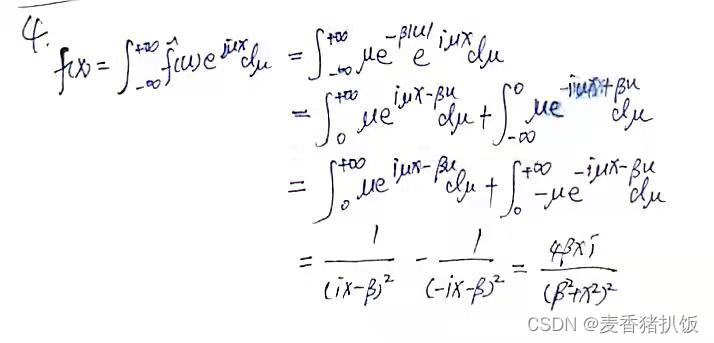 4.
f(x) = ∫_{-∞}^{+∞} f̂(u) e^{iμx} dμ = ∫_{-∞}^{+∞} μe^{-β|u|} e^{iμx} dμ
= ∫_0^{+∞} μe^{iμx-βu} dμ + ∫_{-∞}^0 μe^{-iμx+βu} dμ
= ∫_0^{+∞} μe^{iμx-βu} dμ + ∫_0^{+∞} -μe^{-iμx-βu} dμ
= 1/(ix-β)² - 1/(-ix-β)² = 4βxi/(β²+x²)²
CSDN @麦香猪扒饭